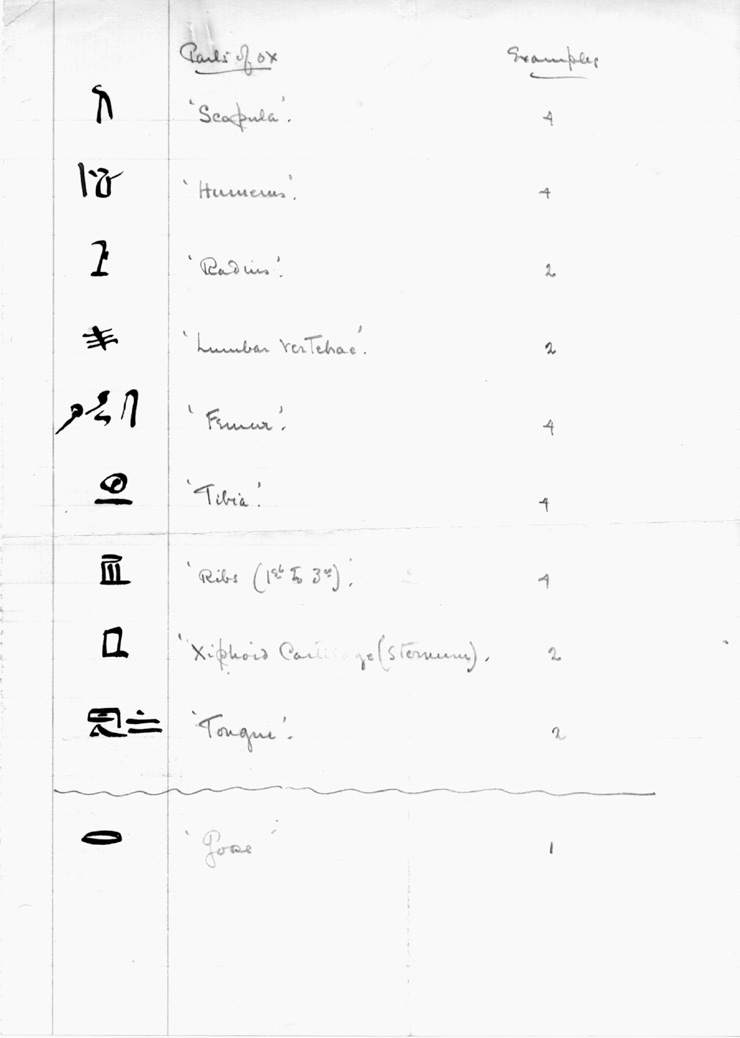 Parts of ox Examples
'Scapula'. 4
'Humerus'. 4
'Radius'. 2
'Lumbar vertebae'. 2
'Femur'. 4
'Tibia'. 4
'Ribs (1st to 3rd)'. 4
'Xiphoid Cartilage (Sternum). 2
'Tongue'. 2
'Goose' 1